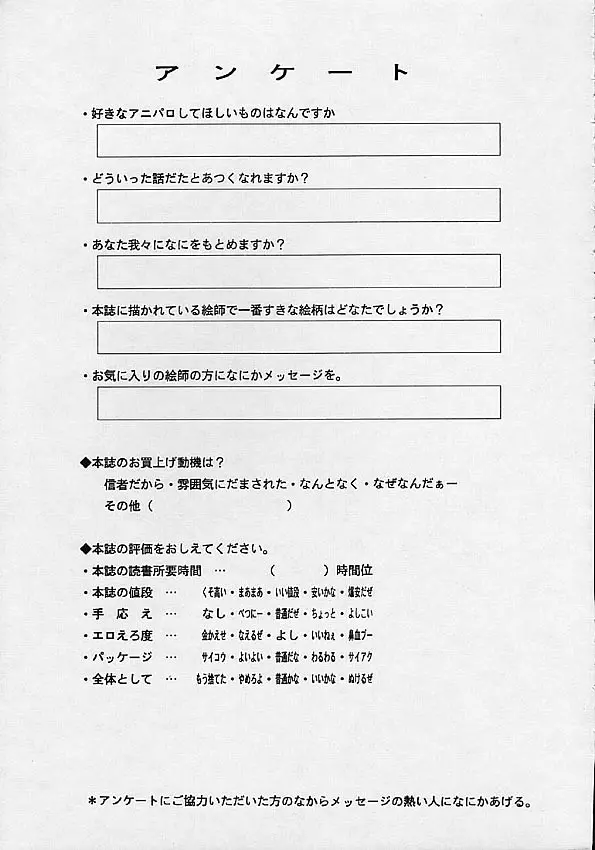 アンケート
・好きなアニパロしてほしいものはなんですか
・どういった話だたとあつくなれますか？
・あなた我々になにをもとめますか？
・本誌に描かれている絵師で一番すきな絵柄はどなたでしょうか？
・お気に入りの絵師の方になにかメッセージを。
◆本誌のお買上げ動機は？
信者だから・雰囲気にだまされた・なんとなく・なぜなんだぁー
その他（　　　　　　　　　　　）
◆本誌の評価をおしえてください。
・本誌の読書所要時間　…　（　　　　）時間位
・本誌の値段　…　くそ高い・まあまあ・いい値段・安いかな・爆安だぜ
・手　応　え　…　なし・べつにー・普通だぜ・ちょっと・よしこい
・エロえろ度　…　金かえせ・なえるぜ・よし・いいねぇ・鼻血ブー
・パッケージ　…　サイコウ・よいよい・普通だな・わるわる・サイアク
・全体として　…　もう捨てた・やめろよ・普通かな・いいかな・ぬけるぜ
＊アンケートにご協力いただいた方のなからメッセージの熱い人になにかあげる。